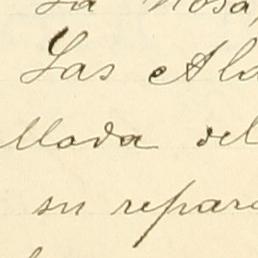 La Rosa,
Las Ald
llada del
su repara